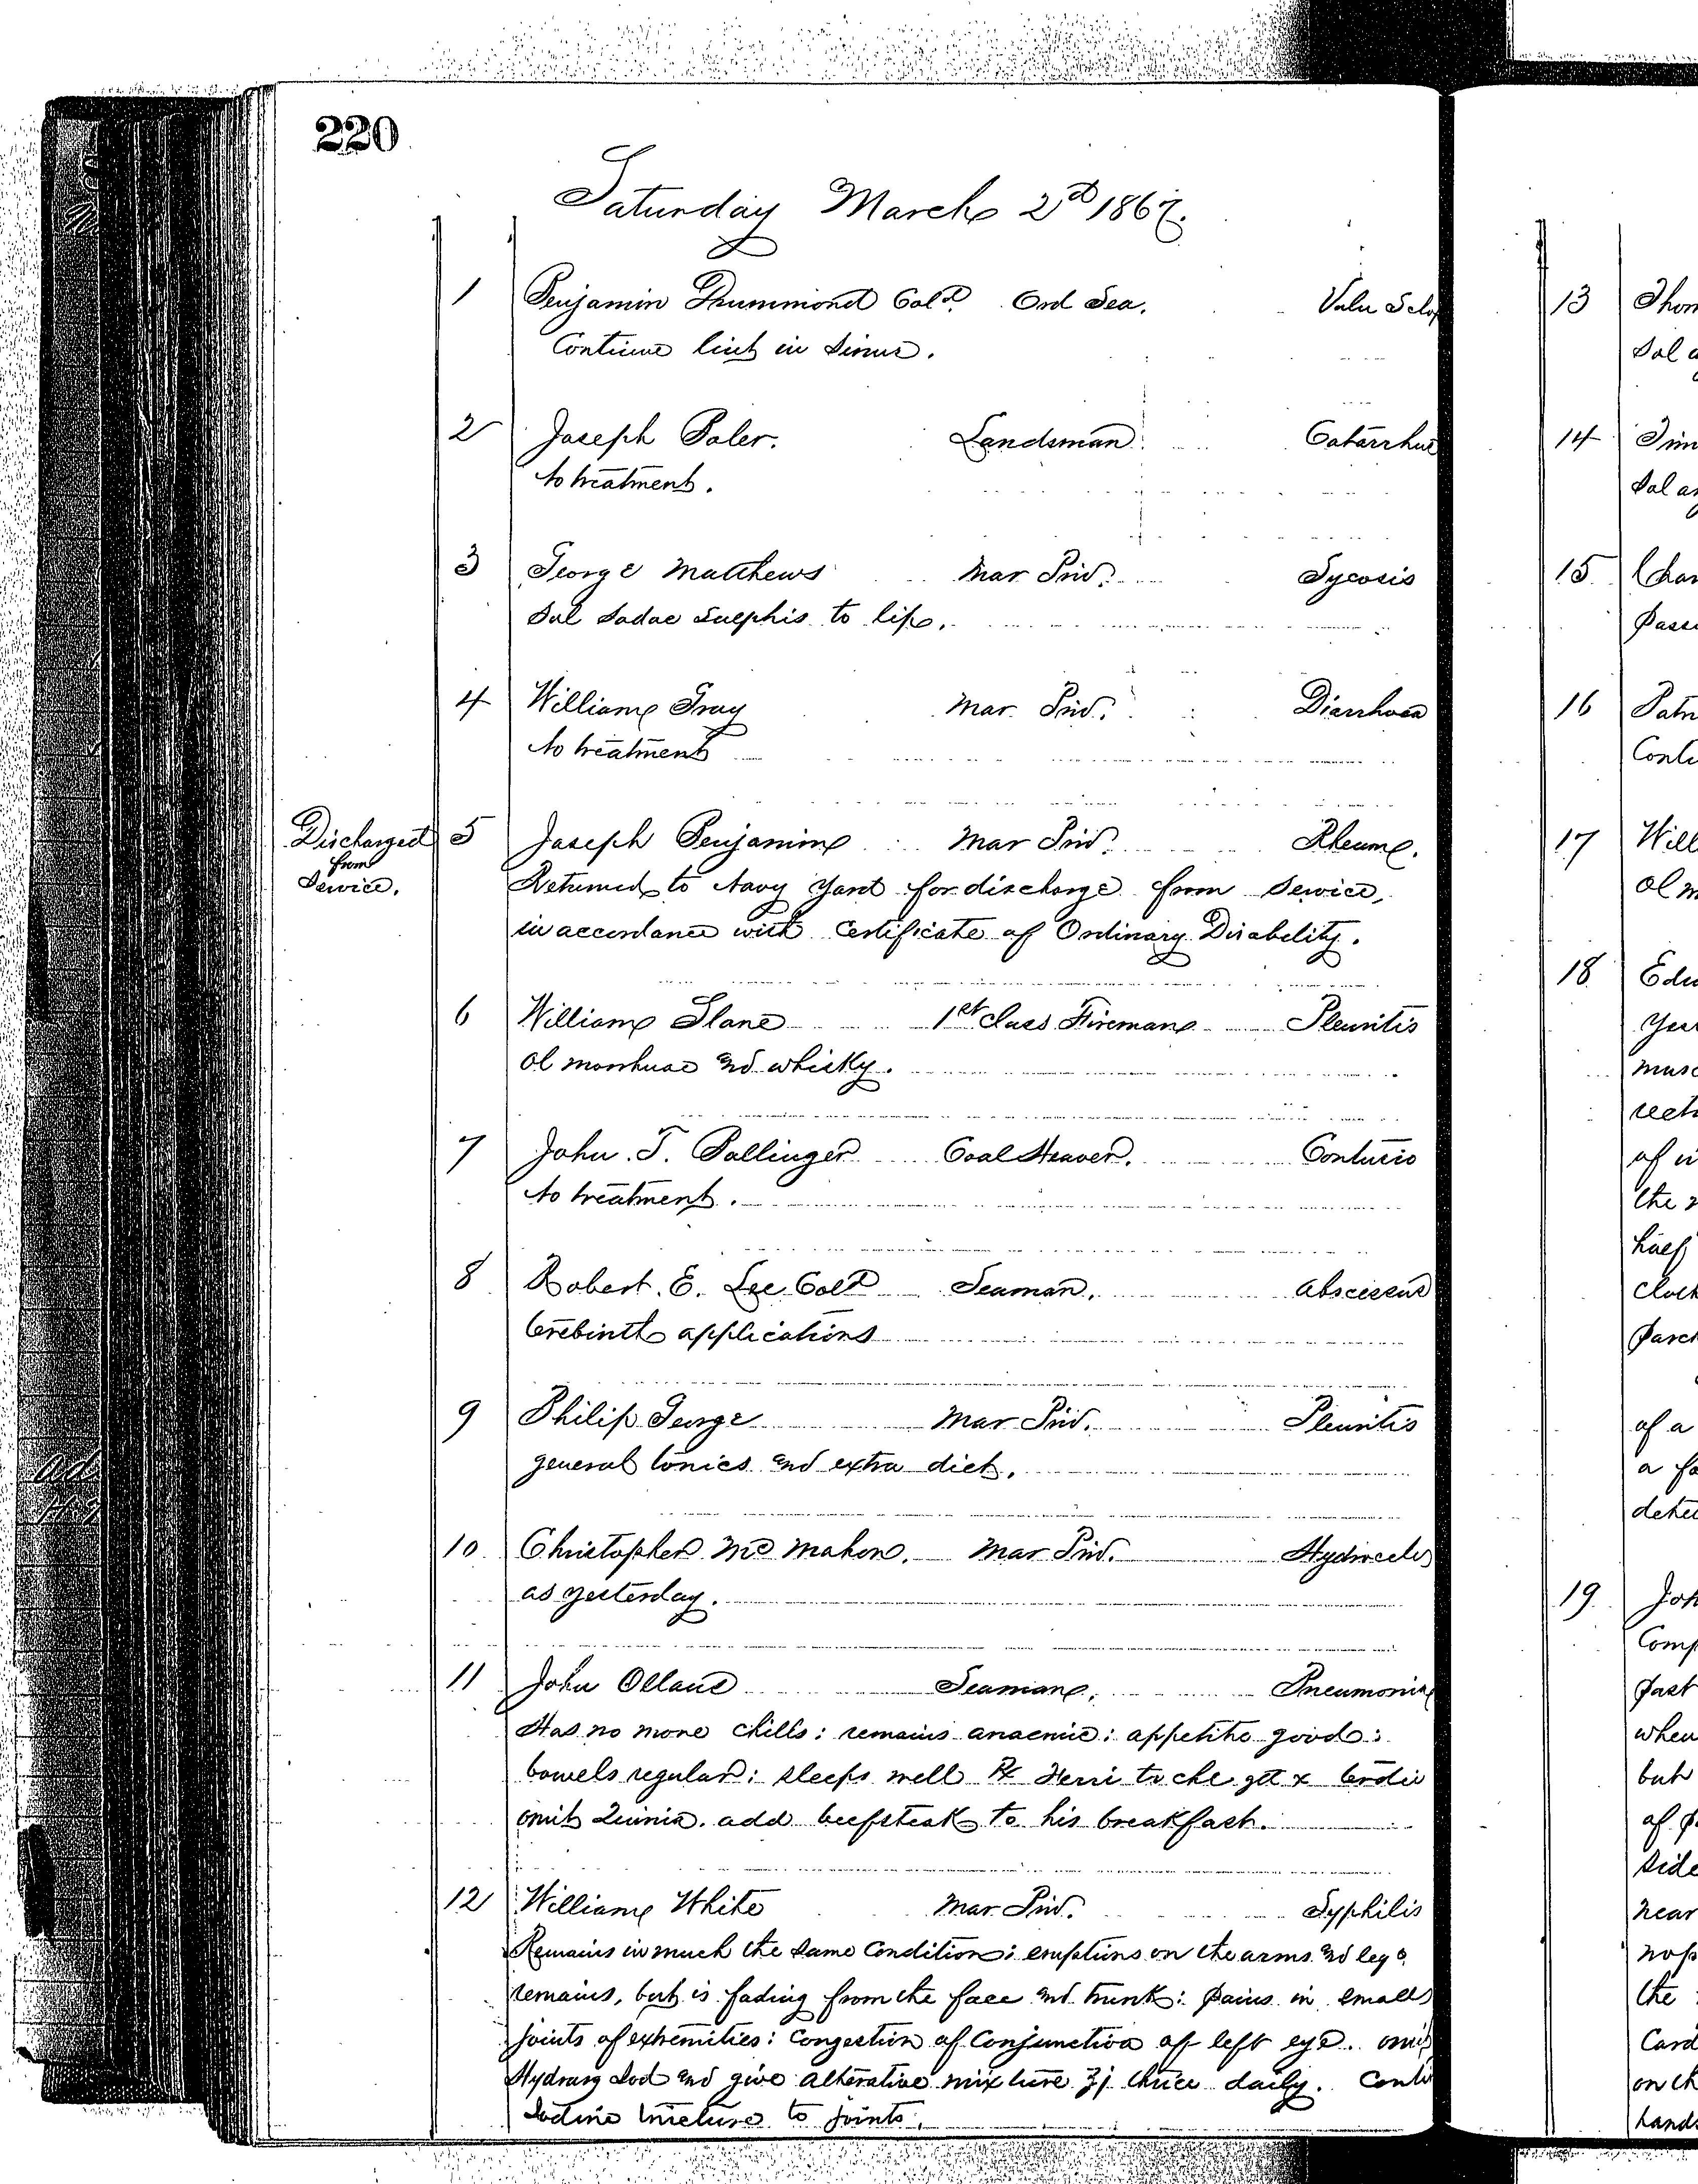 220
Saturday March 2d 1867.
1 Benjamin Drummond Cold. Ord Sea. Vuln Sclop
Continue lint in sinus.
2 Joseph Paler. Landsman Catarrhus
No treatment.
3 George Matthews Mar Priv. Sycosis
Sol Sodae Sulphis to lip.
4 William Gray Mar. Priv. Diarrhoea
No treatment
Discharged from Service.
5 Joseph Benjamin Mar Priv. Rheum.
Returned to Navy Yard for discharge from service,
in accordance with certificate of Ordinary Disability.
6 William Slane 1st Class Fireman Pleuritis
Ol morrhuae and whisky.
7 John T. Bollinger Coal Heaver. Contusio
No treatment.
8 Robert. E. Lee Cold Seaman. Abscessus
Terebinth applications
9 Philip George Mar Priv. Pleuritis
general tonics and extra diet.
10 Christopher Mc Mahon. Mar Priv. Hydrocele
as yesterday.
11 John Olland Seaman. Pneumonia
Has no more chills: remains anaemic: appetite good:
bowels regular: sleeps well ℞ Ferri tr chl gtt x ter die
omit Quinia. add beefsteak to his breakfast.
12 William White Mar Priv. Syphilis
Remains in much the same condition: eruptions on the arms and legs
remains, but is fading from the face and trunk: pains in small
joints of extremities: congestion of conjunctiva of left eye. omit
Hydrarg Iod and give alterative mixture ʒj thrice daily. Conti
Iodine tincture to joints.
13 Thom
Sol
14 Tim
Sol
15 Char
Passe
16 Patr
Conti
17 Will
Ol m
18 Edw
year
musc
rect
of
the
half
clock
Parch
of a
a fa
detec
19 Joh
Comp
past
when
but
of p
side
near
the
Card
on th
hands